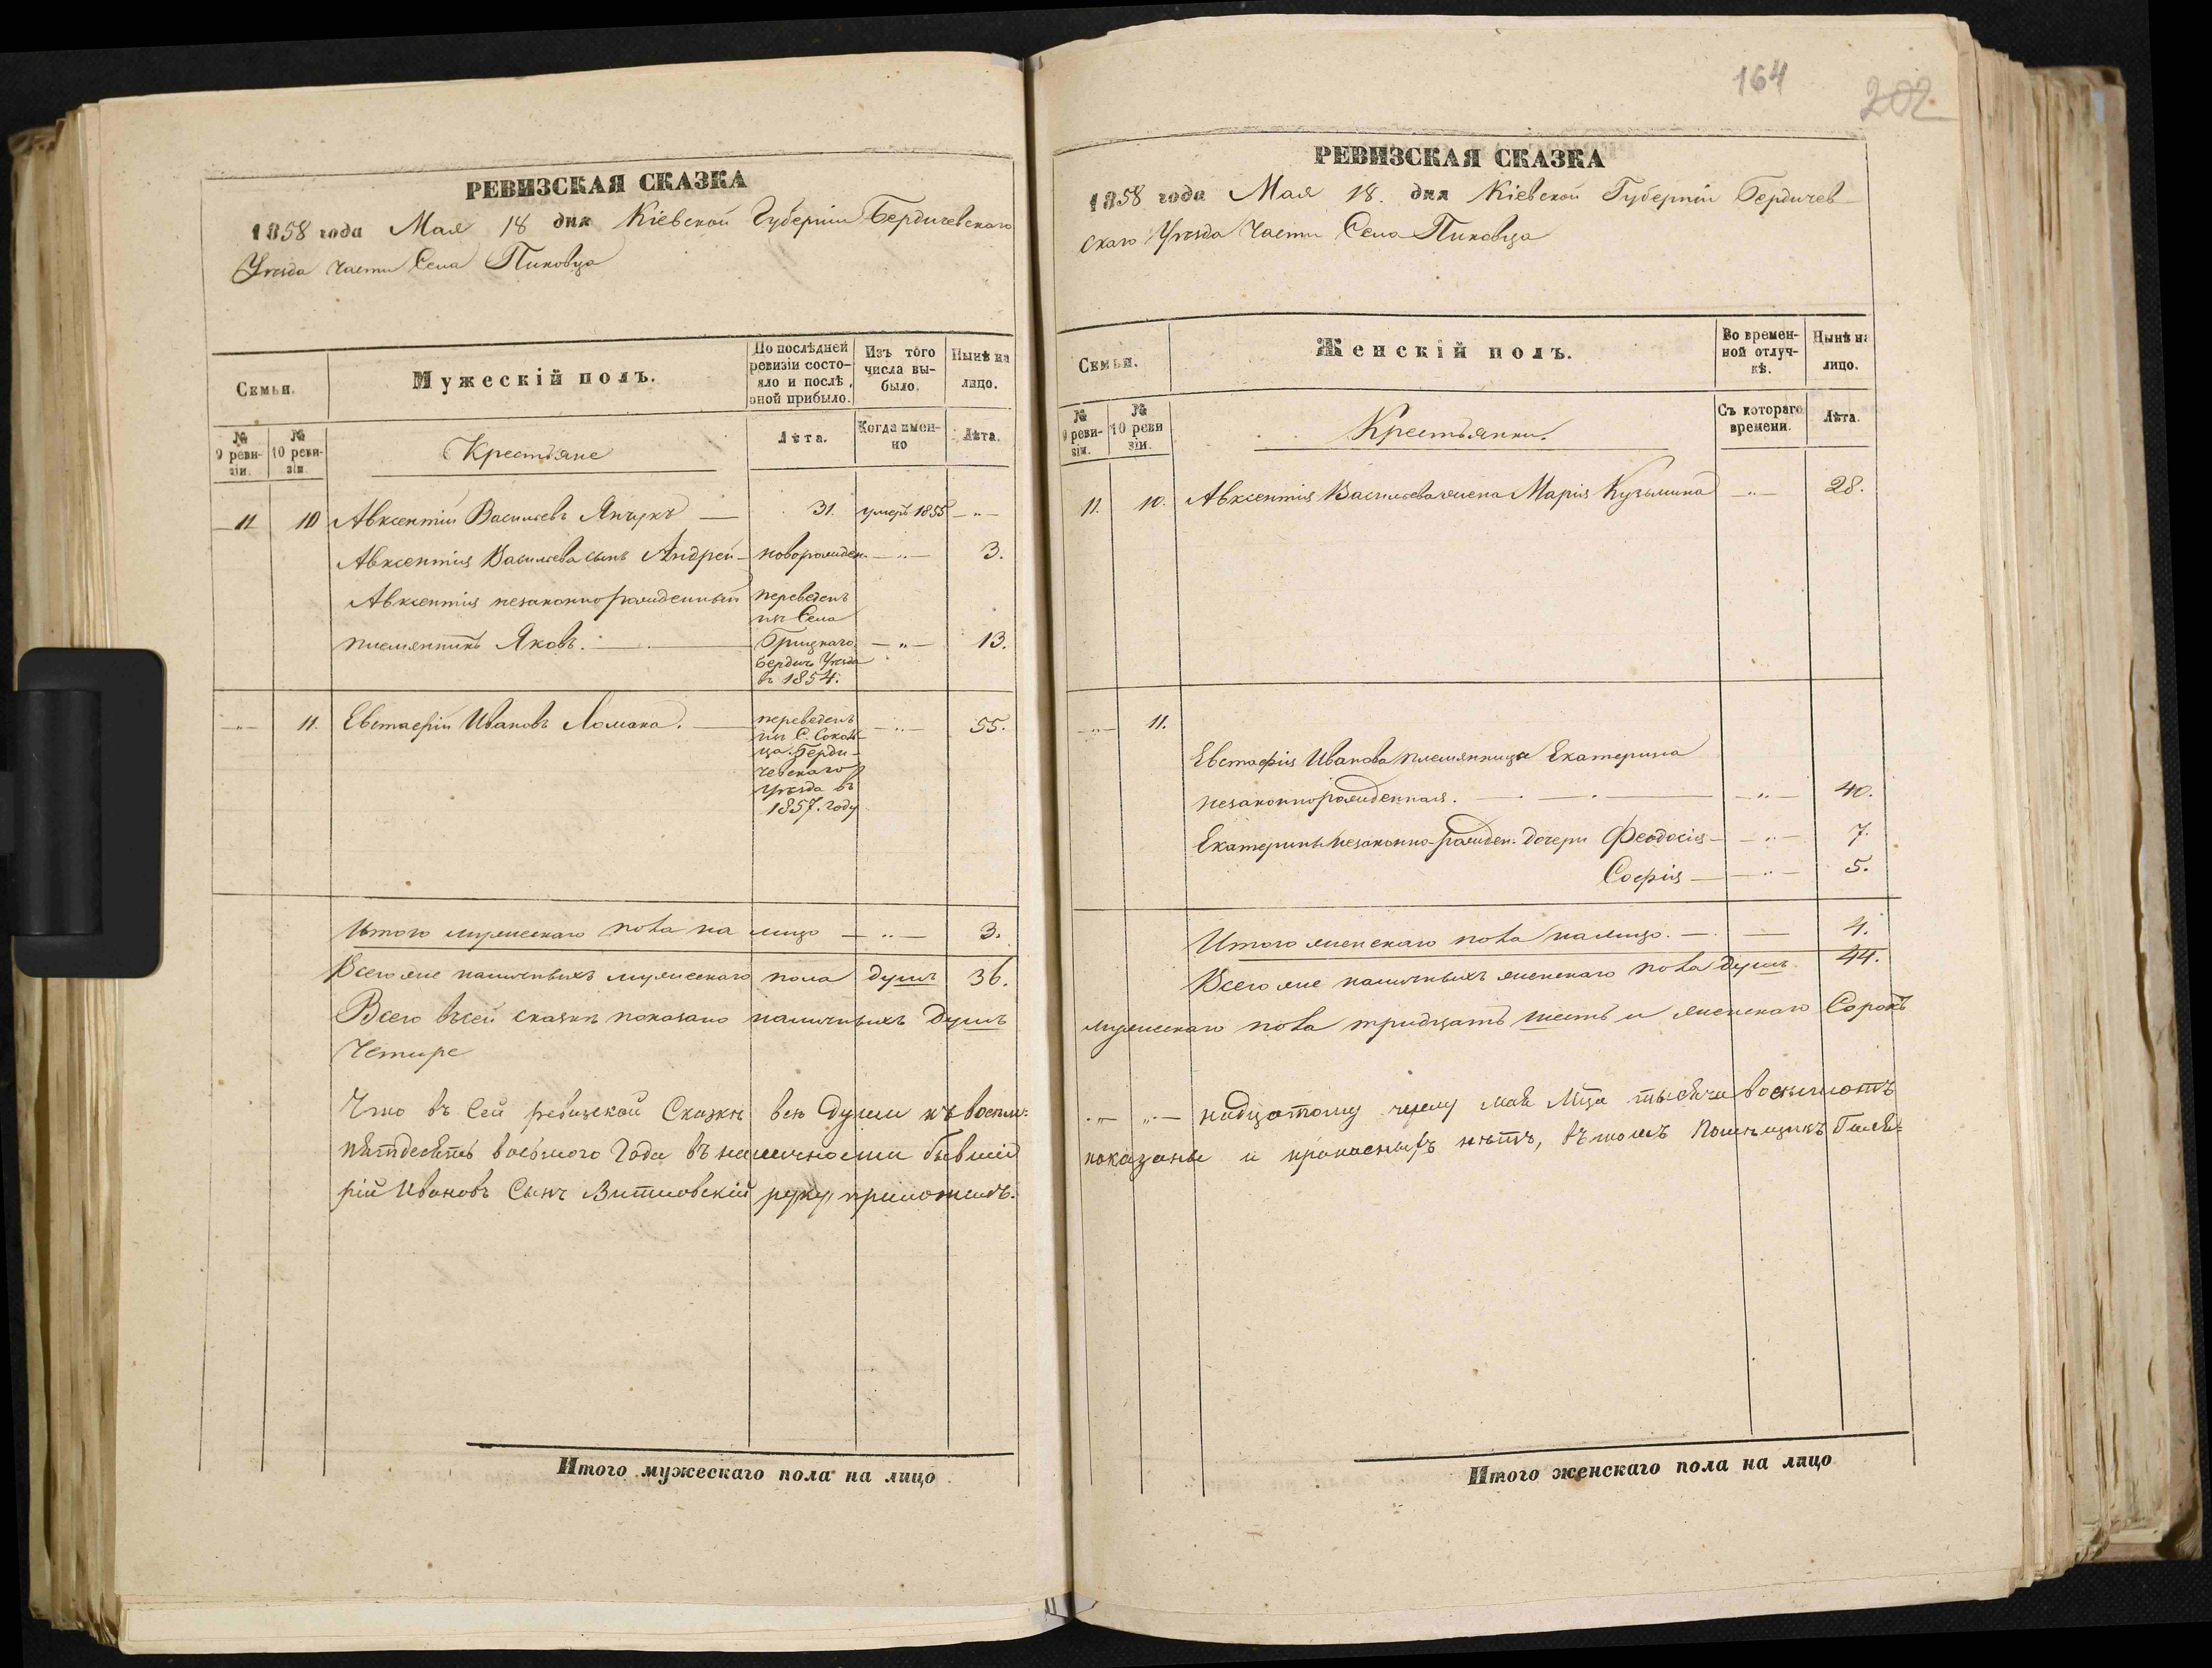 РЕВИЗСКАЯ СКАЗКА
1858 года Мая 18 дня Кіевской Губерніи Бердичевскаго
Уѣзда части Села Пиковца
Семьи.
Мужескій полъ.
По послѣдней ревизіи состояло и послѣ оной прибыло.
Изъ того числа выбыло.
Нынѣ на лицо.
№ 9 ревизіи.
№ 10 ревизіи.
Крестьяне
Лѣта.
Когда именно
Лѣта.
11 10 Авксентій Васильевъ Янчукъ — 31. умеръ 1855 — „ —
Авксентія Васильева сынъ Андрей — новорожден. — „ — 3.
Авксентія незаконнорожденный
племянникъ Яковъ. — переведенъ изъ Села Грицкаго Бердич. Уѣзда въ 1854. — „ — 13.
— „ — 11. Евстафій Ивановъ Ломака. — переведенъ изъ С. Соколца Бердичевскаго Уѣзда въ 1857. году — „ — 55.
Итого мужескаго пола на лицо — „ — 3.
Всего же наличныхъ мужескаго пола душъ 36.
Всего въ сей сказкѣ показано наличныхъ душъ
Четыре
Что въ сей ревизской Сказкѣ всѣ души къ восем-
пятдесятъ восьмого Года въ наличности бывшіе
рій Ивановъ Сынъ Витковскій руку приложилъ.
Итого мужескаго пола на лицо
164
202
РЕВИЗСКАЯ СКАЗКА
1858 года Мая 18. дня Кіевской Губерніи Бердичев-
скаго Уѣзда Части Села Пиковца
Семьи.
Женскій полъ.
Во временной отлучкѣ.
Нынѣ на лицо.
№ 9 ревизіи.
№ 10 ревизіи.
Крестьянки.
Съ котораго времени.
Лѣта.
11. 10. Авксентія Васильева жена Марія Кузьмина — „ — 28.
— „ — 11.
Евстафія Иванова племянница Екатерина
незаконнорожденная. — „ — 40.
Екатерины незаконно-рожден. дочери Феодосія — „ — 7.
Софія — „ — 5.
Итого женскаго пола на лицо. — — 4.
Всего же наличныхъ женскаго пола душъ 44.
мужескаго пола тридцать шесть и женскаго Сорокъ
„ — „ — надцатому числу мая Мца тысяча восемьсотъ
показаны и прописныхъ нѣтъ, въ томъ Помѣщикъ
Итого женскаго пола на лицо